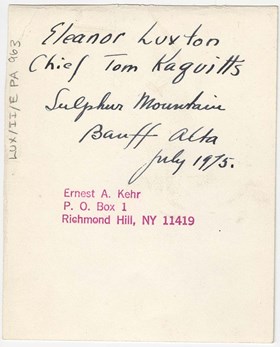 Eleanor Luxton
Chief Tom Kaquitts
Sulphur Mountain
Banff Alta
July 1975.
Ernest A. Kehr
P. O. Box 1
Richmond Hill, NY 11419
LUX/II/E PA 963